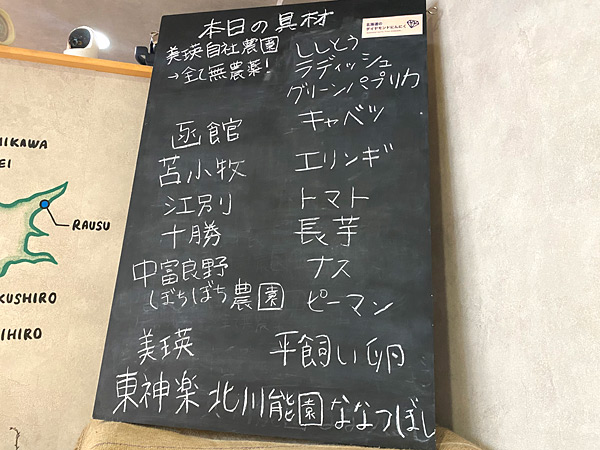 本日の具材
北海道の
ダイヤモンドにんにく
美瑛自社農園 ししとう
→全て無農薬! ラディッシュ
グリーンパプリカ
函館 キャベツ
苫小牧 エリンギ
江別 トマト
十勝 長芋
中富良野 ナス
ぼちぼち農園 ピーマン
美瑛 平飼い卵
東神楽 北川能園 ななつぼし
IKAWA
EI
RAUSU
KUSHIRO
IHIRO